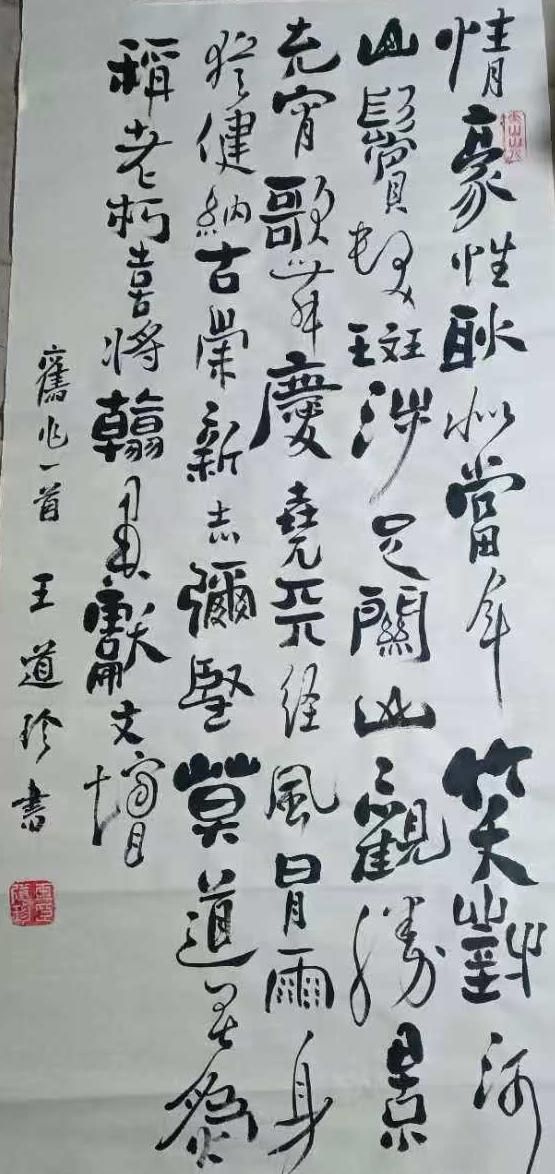 情豪性耿似當年笑對河
山鬢髮斑涉足關山觀勝景
宵歌舞慶堯天经風冒雨身
猶健納古新志彌堅莫道吾
稱老朽喜將翰墨獻文壇
舊作一首 王道珍書